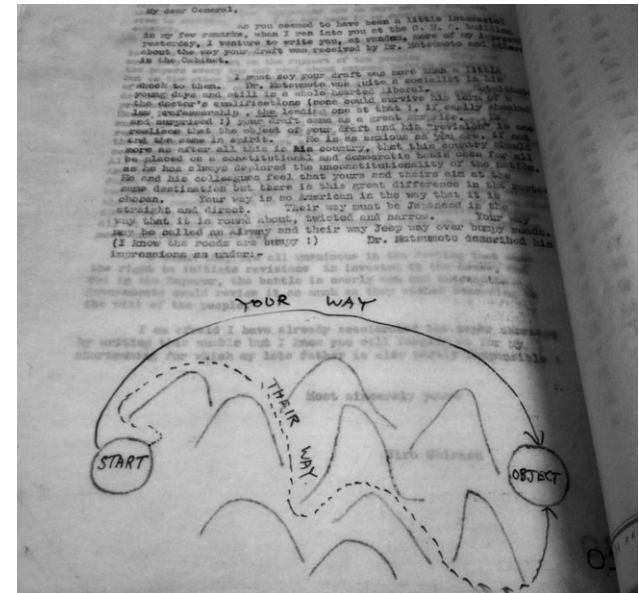 My dear General,
As you seemed to have been a little interested
in my few remarks, when I ran into you at the C. H. Q. building
yesterday, I venture to write you, at random, more of my
about the way your draft was received by Dr. Matsumoto and others
in the Cabinet.
I must say your draft was more than a little
shock to them. Dr. Matsumoto was quite a socialist in his
young days and still is a whole hearted liberal.
the doctor's qualifications (none could survive his term of a
law professorship, the leading one at that), if easily shocked
and surprised!) your draft came as a great surprise. He
realizes that the object of your draft and his "revision" is one
and the same in spirit. He is as anxious as you are, if not
more as after all this is his country, that this country should
be placed on a constitutional and democratic basis once for all
as he has always deplored the unconstitutionality of the nation.
He and his colleagues feel that yours and theirs aim at the
same destination but there is this great difference in the routes
chosen. Your way is so American in the way that it is
straight and direct. Their way must be Japanese in the
way that it is round about, twisted and narrow. Your way
may be called an Airway and their way Jeep way over bumpy roads.
(I know the roads are bumpy !) Dr. Matsumoto described his
impressions as under:-
the right to initiate revisions is invested in the
the will of the people
YOUR WAY
I am afraid I have already accelerated the paper shortage
by writing this mumble but I know you will forgive me for my
shortcoming for which my late father is also partly responsible
THEIR WAY
Most sincerely yours
START
OBJECT